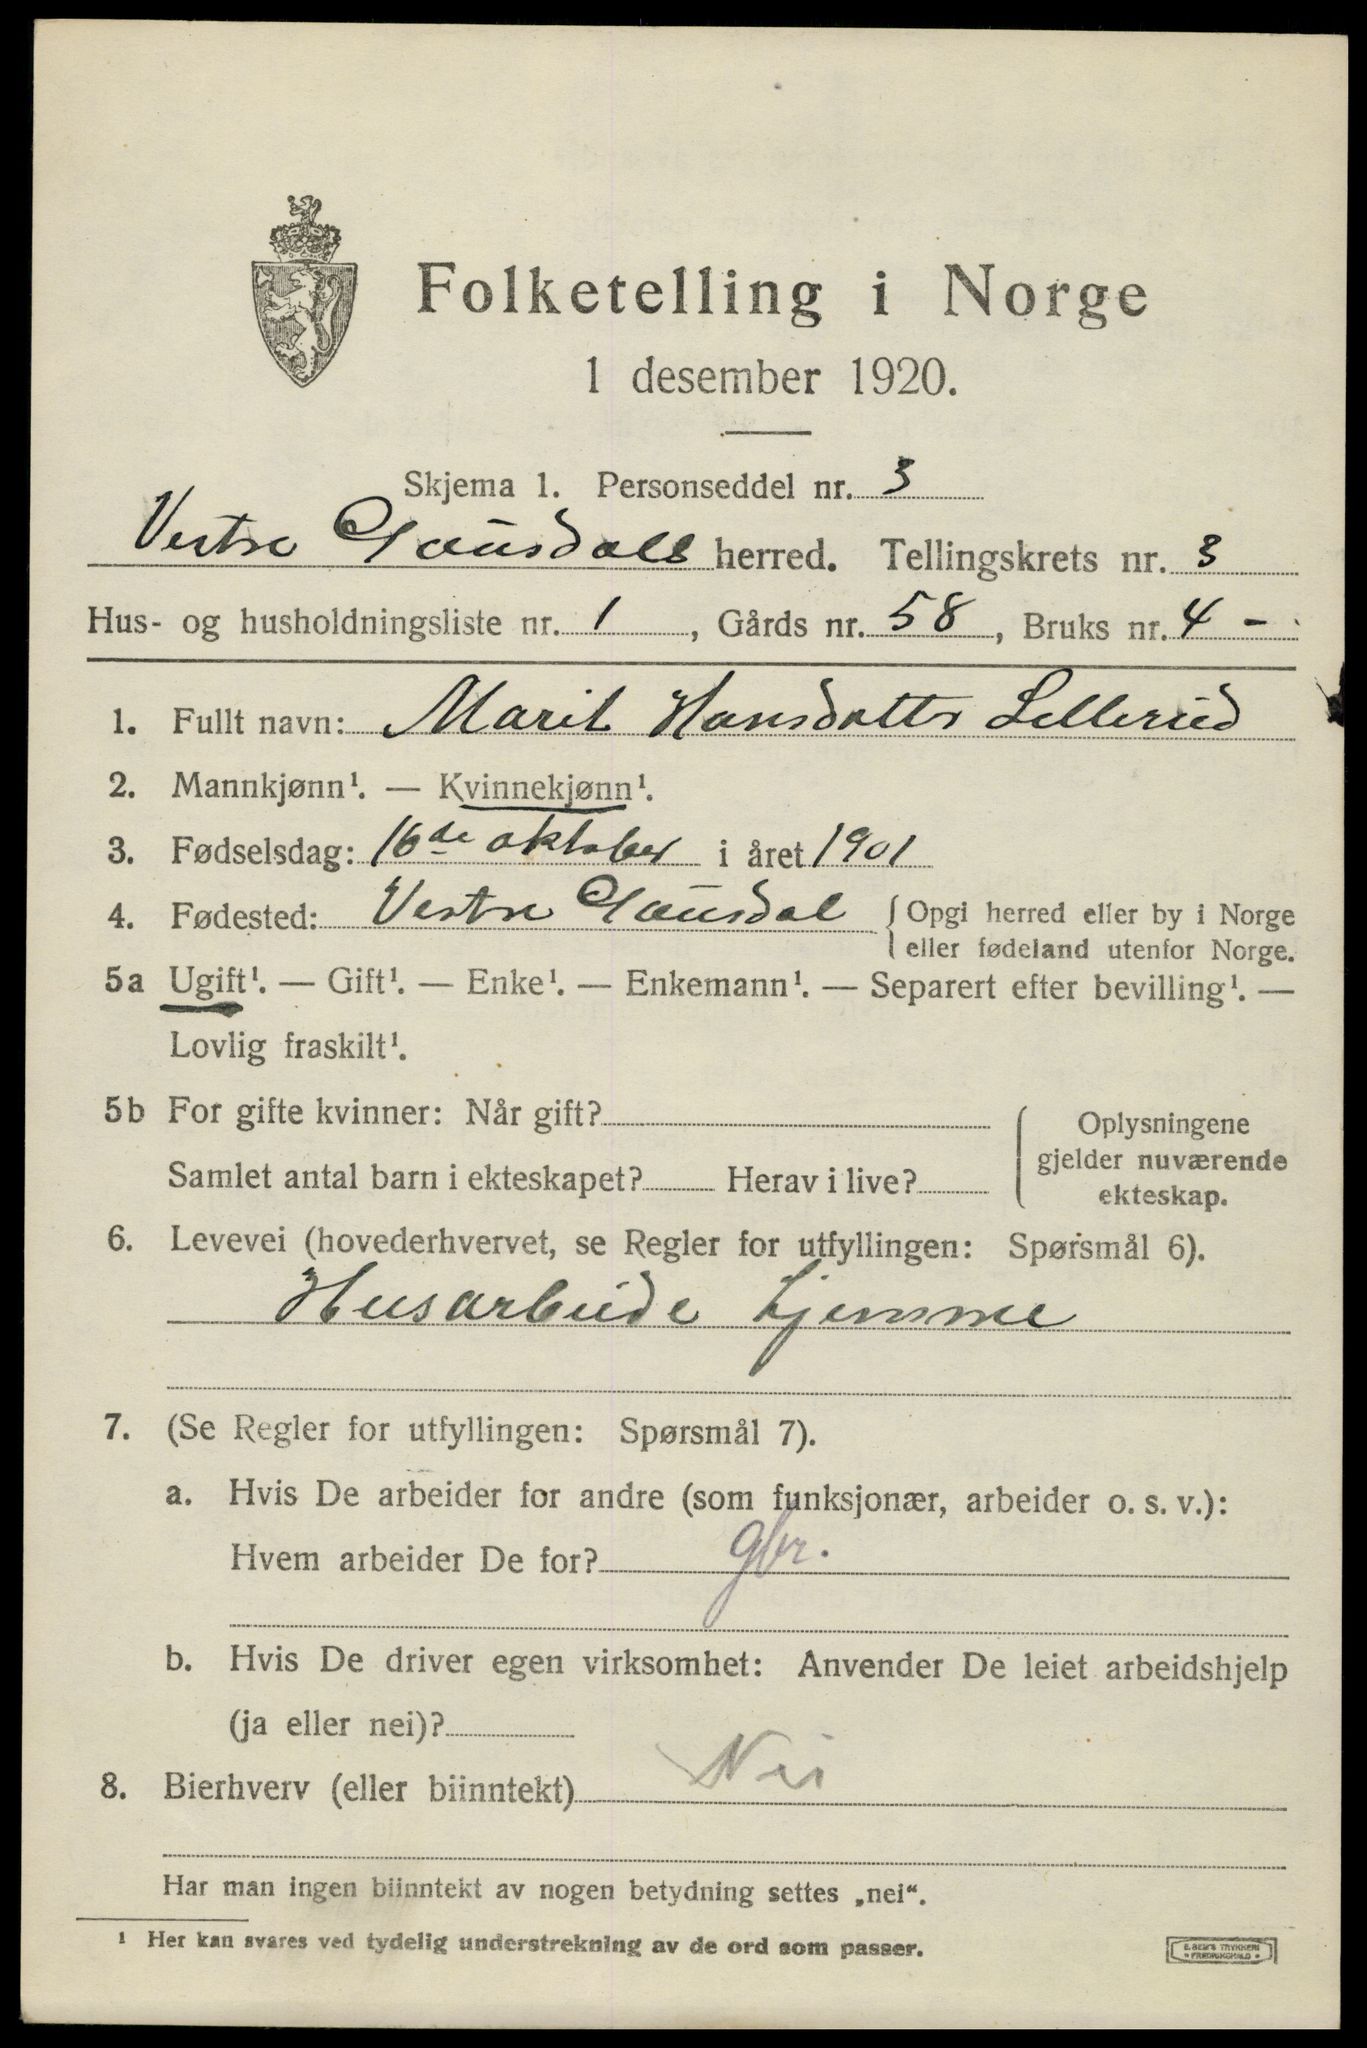 Folketelling i Norge
1 desember 1920.
Skjema 1. Personseddel nr. 3
Vestre Gausdals herred. Tellingskrets nr. 3
Hus- og husholdningsliste nr. 1, Gårds nr. 58, Bruks nr. 4 -
1. Fullt navn: Marit Hansdatter
2. Mannkjønn¹. — Kvinnekjønn¹.
3. Fødselsdag: 16de oktober i året 1901
4. Fødested: Vestre Gausdal { Opgi herred eller by i Norge
eller fødeland utenfor Norge.
5a Ugift¹. — Gift¹. — Enke¹. — Enkemann¹. — Separert efter bevilling¹. —
Lovlig fraskilt¹.
5b For gifte kvinner: Når gift?
Samlet antal barn i ekteskapet? Herav i live?
Oplysningene
gjelder nuværende
ekteskap.
6. Levevei (hovederhvervet, se Regler for utfyllingen: Spørsmål 6).
Husarbeide hjemme
7. (Se Regler for utfyllingen: Spørsmål 7).
a. Hvis De arbeider for andre (som funksjonær, arbeider o. s. v.):
Hvem arbeider De for? gbr.
b. Hvis De driver egen virksomhet: Anvender De leiet arbeidshjelp
(ja eller nei)?
8. Bierhverv (eller biinntekt) Nei
Har man ingen biinntekt av nogen betydning settes „nei“.
¹ Her kan svares ved tydelig understrekning av de ord som passer.
E. SEM'S TRYKKERI
* FREDRIKSHALD *